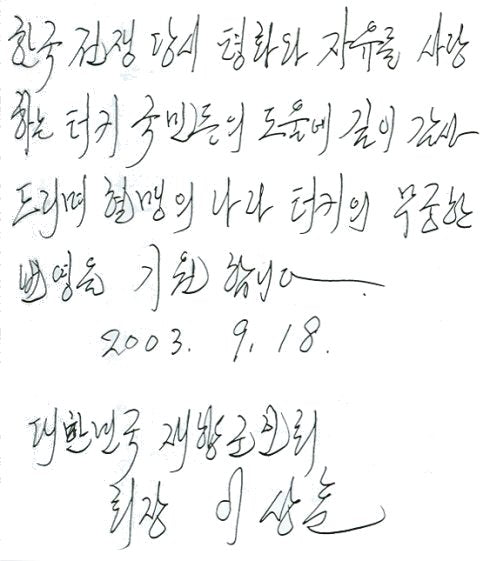 한국 전쟁 당시 평화와 자유를 사랑
하는 터키 국민들의 도움에 깊이 감사
드리며 혈맹의 나라 터키의 무궁한
번영을 기원 합니다.
2003. 9. 18.
대한민국 재향군인회
회장 이상훈